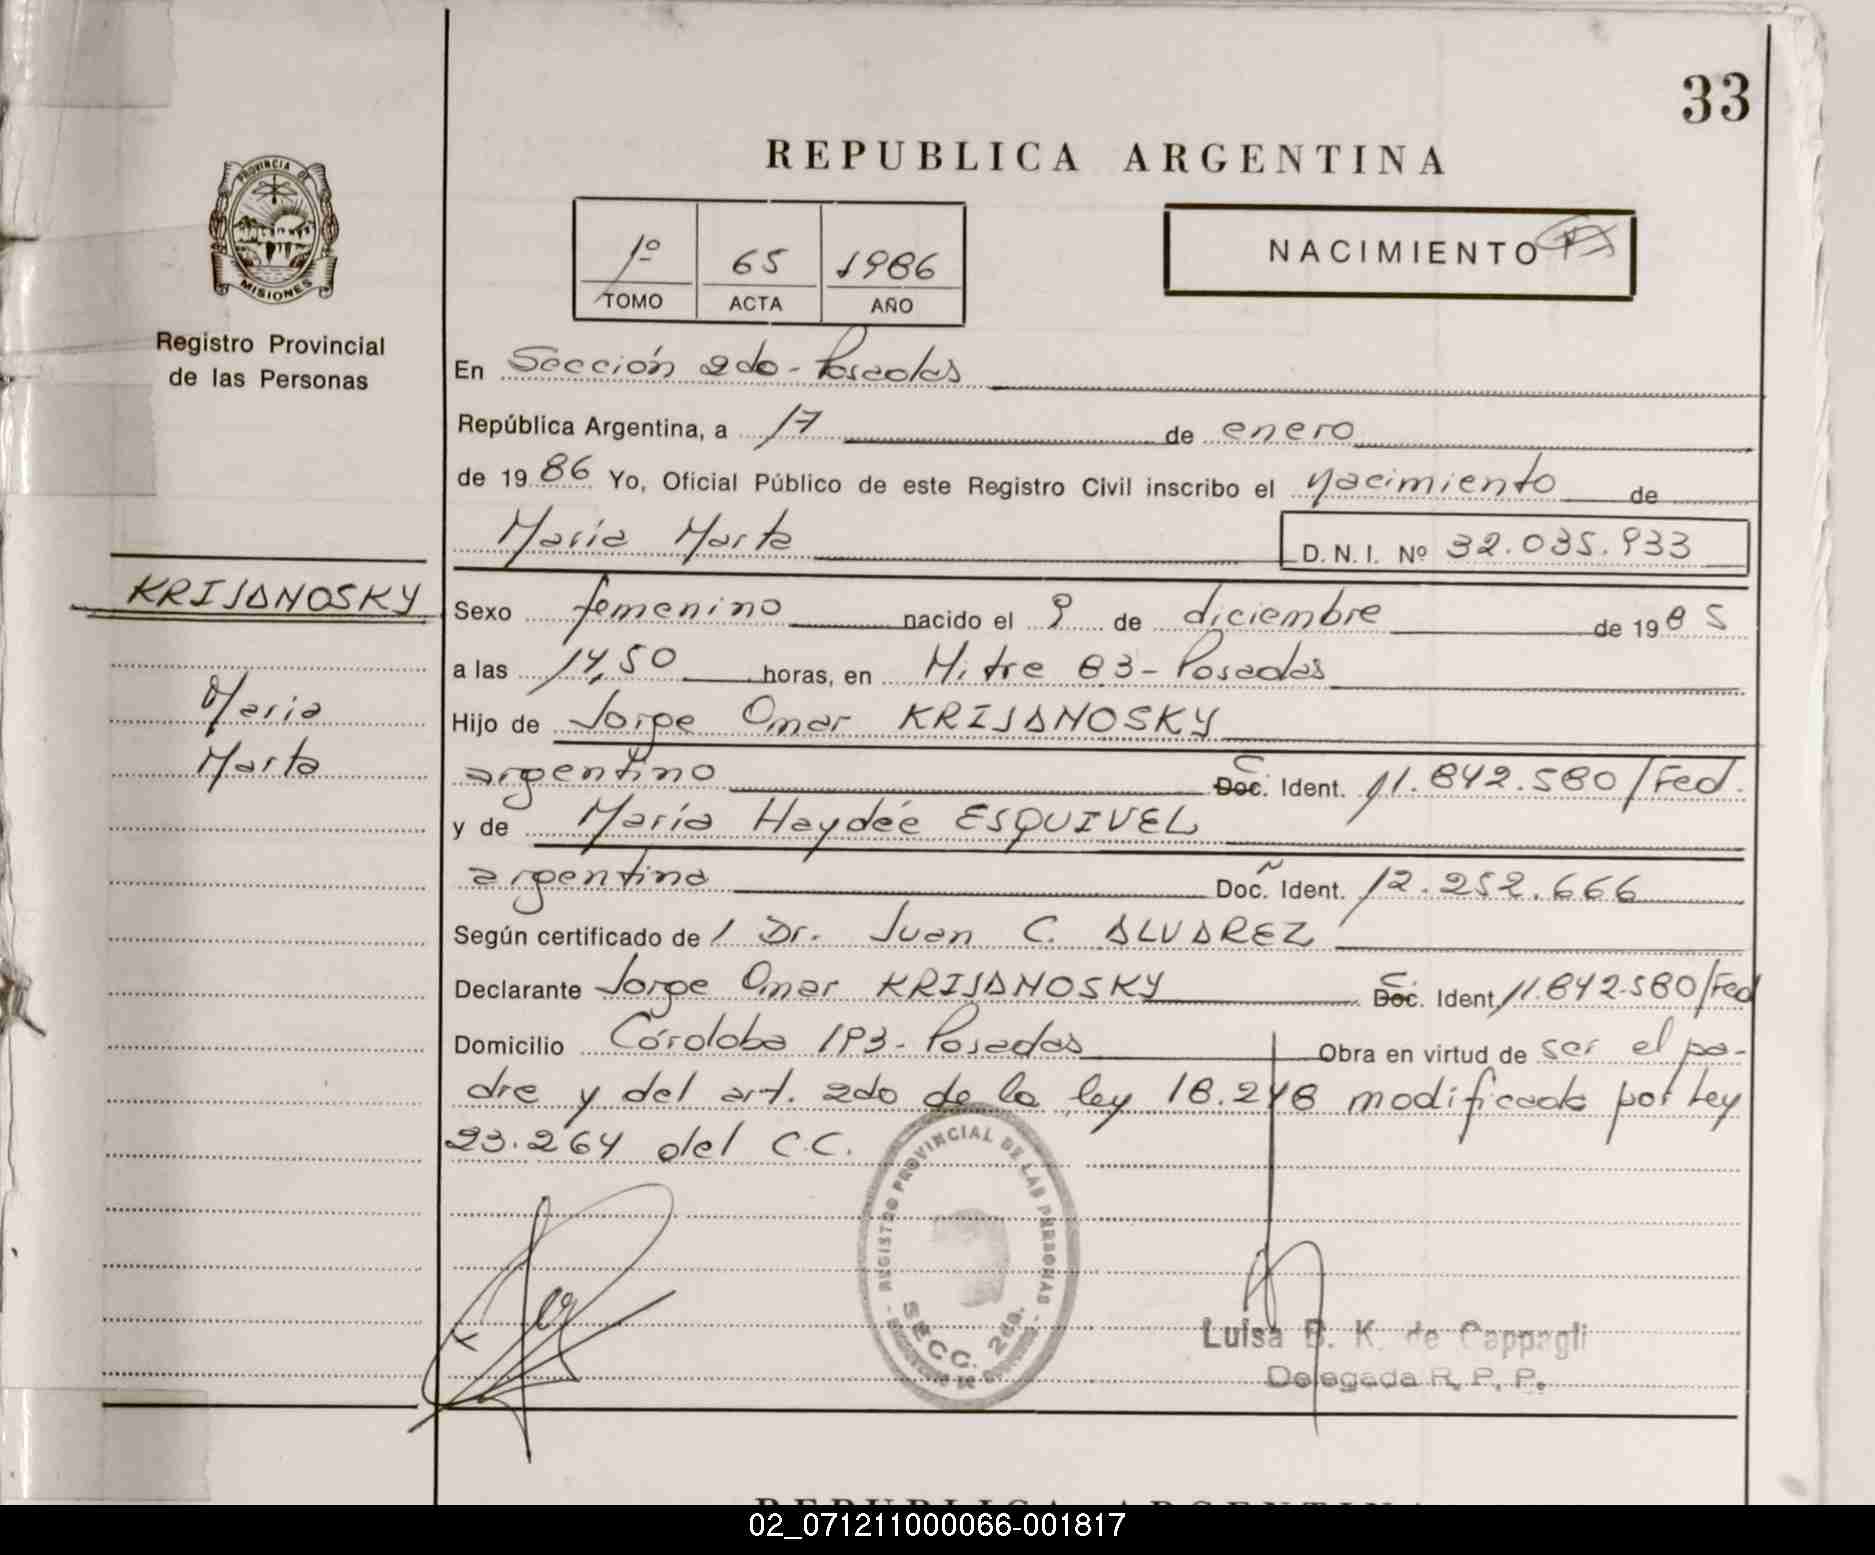 33
REPUBLICA ARGENTINA
PROVINCIA DE
MISIONES
Registro Provincial
de las Personas
1º 65 1986
TOMO ACTA AÑO
NACIMIENTO
En Sección 2da - Posadas
República Argentina, a 17 de enero
de 1986 Yo, Oficial Público de este Registro Civil inscribo el nacimiento de
María Marta D. N. I. Nº 32.035.933
KRIJANOSKY
María
Marta
Sexo femenino nacido el 9 de diciembre de 1985
a las 14,50 horas, en Mitre 83 - Posadas
Hijo de Jorge Omar KRIJANOSKY
argentino Doc. C Ident. 11.842.580/Fed.
y de María Haydée ESQUIVEL
argentina Doc. Ident. 12.252.666
Según certificado de l Dr. Juan C. ALVAREZ
Declarante Jorge Omar KRIJANOSKY Doc. C Ident. 11.842.580/Fed
Domicilio Córdoba 193 - Posadas Obra en virtud de ser el pa-
dre y del art. 2do de la ley 18.248 modificado por Ley
23.264 del C.C.
REGISTRO PROVINCIAL DE LAS PERSONAS
SECC. 2da.
Luisa B. K. de Cappagli
Delegada R. P. P.
REPUBLICA ARGENTINA
02_071211000066-001817